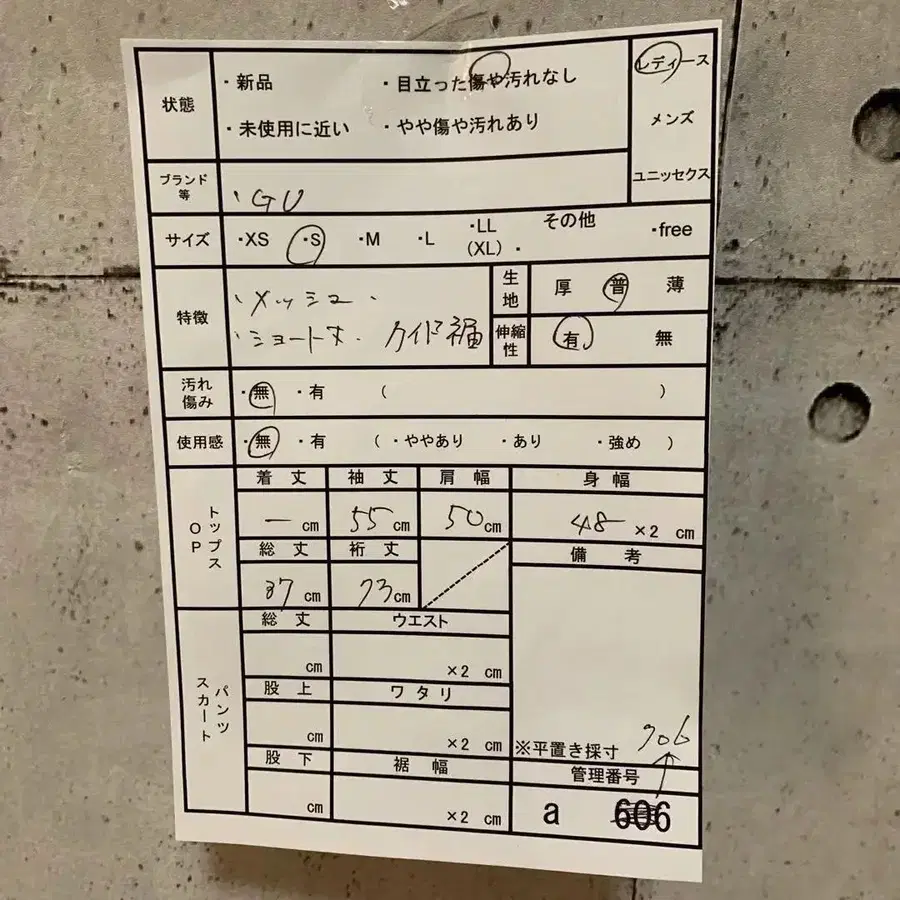 状態
・新品 ・目立った傷や汚れなし
・未使用に近い ・やや傷や汚れあり
レディース
メンズ
ユニッセクス
ブランド等
・GU
サイズ
・XS ・S ・M ・L ・LL(XL) ・その他 ・free
特徴
・メッシュ・
・ショート丈・ワイド袖
生地
厚 普 薄
伸縮性
有 無
汚れ傷み
・無 ・有 ( )
使用感
・無 ・有 ( ・ややあり ・あり ・強め )
トップス OP
着丈 袖丈 肩幅 身幅
― cm 55 cm 50 cm 48 ×2 cm
総丈 裄丈 備考
37 cm 73 cm
パンツ スカート
総丈 ウエスト
cm ×2 cm
股上 ワタリ
cm ×2 cm
股下 裾幅
cm ×2 cm
※平置き採寸 706
管理番号
a 606